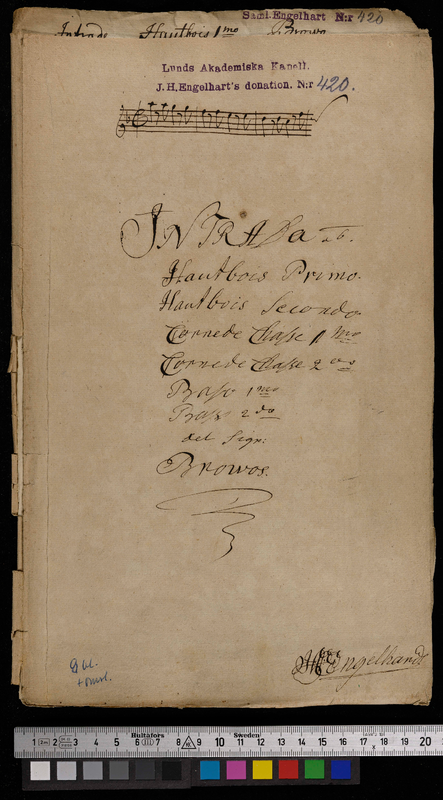 Saml. Engelhart N:r 420
Intrade Hautbois 1mo
Lunds Akademiska Kapell.
J.H. Engelhart's donation. N:r 420.
INTRADa a 6.
Hautbois Primo.
Hautbois Secondo
Cornede Chasse 1mo
Cornede Chasse 2do
Basso 1mo
Basso 2do
del Sigr:
Browos.
Engelhardt
Hultafors Sweden
1 2 3 4 5 6 7 8 9 10 11 12 13 14 15 16 17 18 19 20